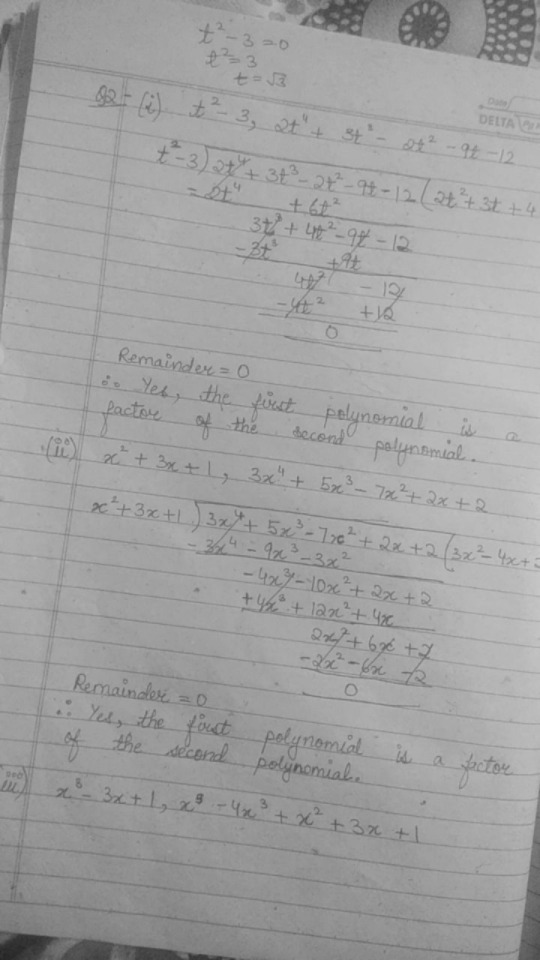 t² - 3 = 0
t² = 3
t = √3
Date
DELTA Pg
Q2 - (i) t² - 3, 2t⁴ + 3t³ - 2t² - 9t - 12
t² - 3) 2t⁴ + 3t³ - 2t² - 9t - 12 (2t² + 3t + 4
= 2t⁴ + 6t²
3t³ + 4t² - 9t - 12
- 3t³ + 9t
4t² - 12
- 4t² + 12
0
Remainder = 0
∴ Yes, the first polynomial is a
factor of the second polynomial.
(ii) x² + 3x + 1, 3x⁴ + 5x³ - 7x² + 2x + 2
x² + 3x + 1) 3x⁴ + 5x³ - 7x² + 2x + 2 (3x² - 4x + 2
- 3x⁴ - 9x³ - 3x²
- 4x³ - 10x² + 2x + 2
+ 4x³ + 12x² + 4x
2x² + 6x + 2
- 2x² - 6x - 2
0
Remainder = 0
∴ Yes, the first polynomial is a factor
of the second polynomial.
(iii) x³ - 3x + 1, x⁵ - 4x³ + x² + 3x + 1